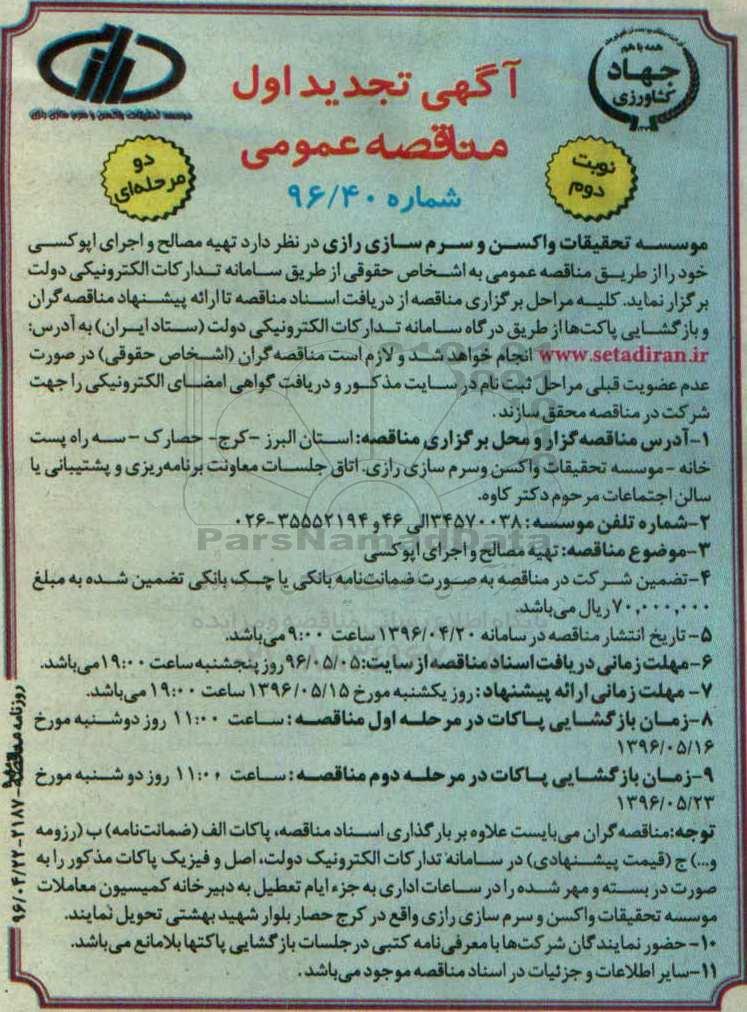 همه با هم
جهاد
کشاورزی
موسسه تحقیقات واکسن و سرم سازی رازی
آگهی تجدید اول
مناقصه عمومی
شماره ۹۶/۴۰
نوبت
دوم
دو
مرحله‌ای
موسسه تحقیقات واکسن و سرم سازی رازی در نظر دارد تهیه مصالح و اجرای اپوکسی
خود را از طریق مناقصه عمومی به اشخاص حقوقی از طریق سامانه تدارکات الکترونیکی دولت
برگزار نماید. کلیه مراحل برگزاری مناقصه از دریافت اسناد مناقصه تا ارائه پیشنهاد مناقصه‌گران
و بازگشایی پاکت‌ها از طریق درگاه سامانه تدارکات الکترونیکی دولت (ستاد ایران) به آدرس:
www.setadiran.ir انجام خواهد شد و لازم است مناقصه‌گران (اشخاص حقوقی) در صورت
عدم عضویت قبلی مراحل ثبت نام در سایت مذکور و دریافت گواهی امضای الکترونیکی را جهت
شرکت در مناقصه محقق سازند.
۱-آدرس مناقصه‌گزار و محل برگزاری مناقصه: استان البرز -کرج- حصارک -سه راه پست
خانه -موسسه تحقیقات واکسن وسرم سازی رازی. اتاق جلسات معاونت برنامه‌ریزی و پشتیبانی یا
سالن اجتماعات مرحوم دکتر کاوه.
۲-شماره تلفن موسسه: ۳۴۵۷۰۰۳۸الی ۴۶ و ۳۵۵۵۲۱۹۴-۰۲۶
۳-موضوع مناقصه: تهیه مصالح و اجرای اپوکسی
۴-تضمین شرکت در مناقصه به صورت ضمانت‌نامه بانکی یا چک بانکی تضمین شده به مبلغ
۷۰,۰۰۰,۰۰۰ ریال می‌باشد.
۵- تاریخ انتشار مناقصه در سامانه ۱۳۹۶/۰۴/۲۰ ساعت ۹:۰۰ می‌باشد.
۶-مهلت زمانی دریافت اسناد مناقصه از سایت: ۹۶/۰۵/۰۵ روز پنجشنبه ساعت ۱۹:۰۰ می‌باشد.
۷- مهلت زمانی ارائه پیشنهاد: روز یکشنبه مورخ ۱۳۹۶/۰۵/۱۵ ساعت ۱۹:۰۰ می‌باشد.
۸-زمان بازگشایی پاکات در مرحله اول مناقصه: ساعت ۱۱:۰۰ روز دوشنبه مورخ
۱۳۹۶/۰۵/۱۶
۹-زمان بازگشایی پاکات در مرحله دوم مناقصه: ساعت ۱۱:۰۰ روز دوشنبه مورخ
۱۳۹۶/۰۵/۲۳
توجه: مناقصه‌گران می‌بایست علاوه بر بارگذاری اسناد مناقصه، پاکات الف (ضمانت‌نامه) ب (رزومه
و...) ج (قیمت پیشنهادی) در سامانه تدارکات الکترونیک دولت، اصل و فیزیک پاکات مذکور را به
صورت در بسته و مهر شده را در ساعات اداری به جزء ایام تعطیل به دبیرخانه کمیسیون معاملات
موسسه تحقیقات واکسن و سرم سازی رازی واقع در کرج حصار بلوار شهید بهشتی تحویل نمایند.
۱۰-حضور نمایندگان شرکت‌ها با معرفی‌نامه کتبی در جلسات بازگشایی پاکتها بلامانع می‌باشد.
۱۱-سایر اطلاعات و جزئیات در اسناد مناقصه موجود می‌باشد.
روزنامه مناقصه-۲۱۸۷-۹۶/۰۴/۲۲
ParsNamadData